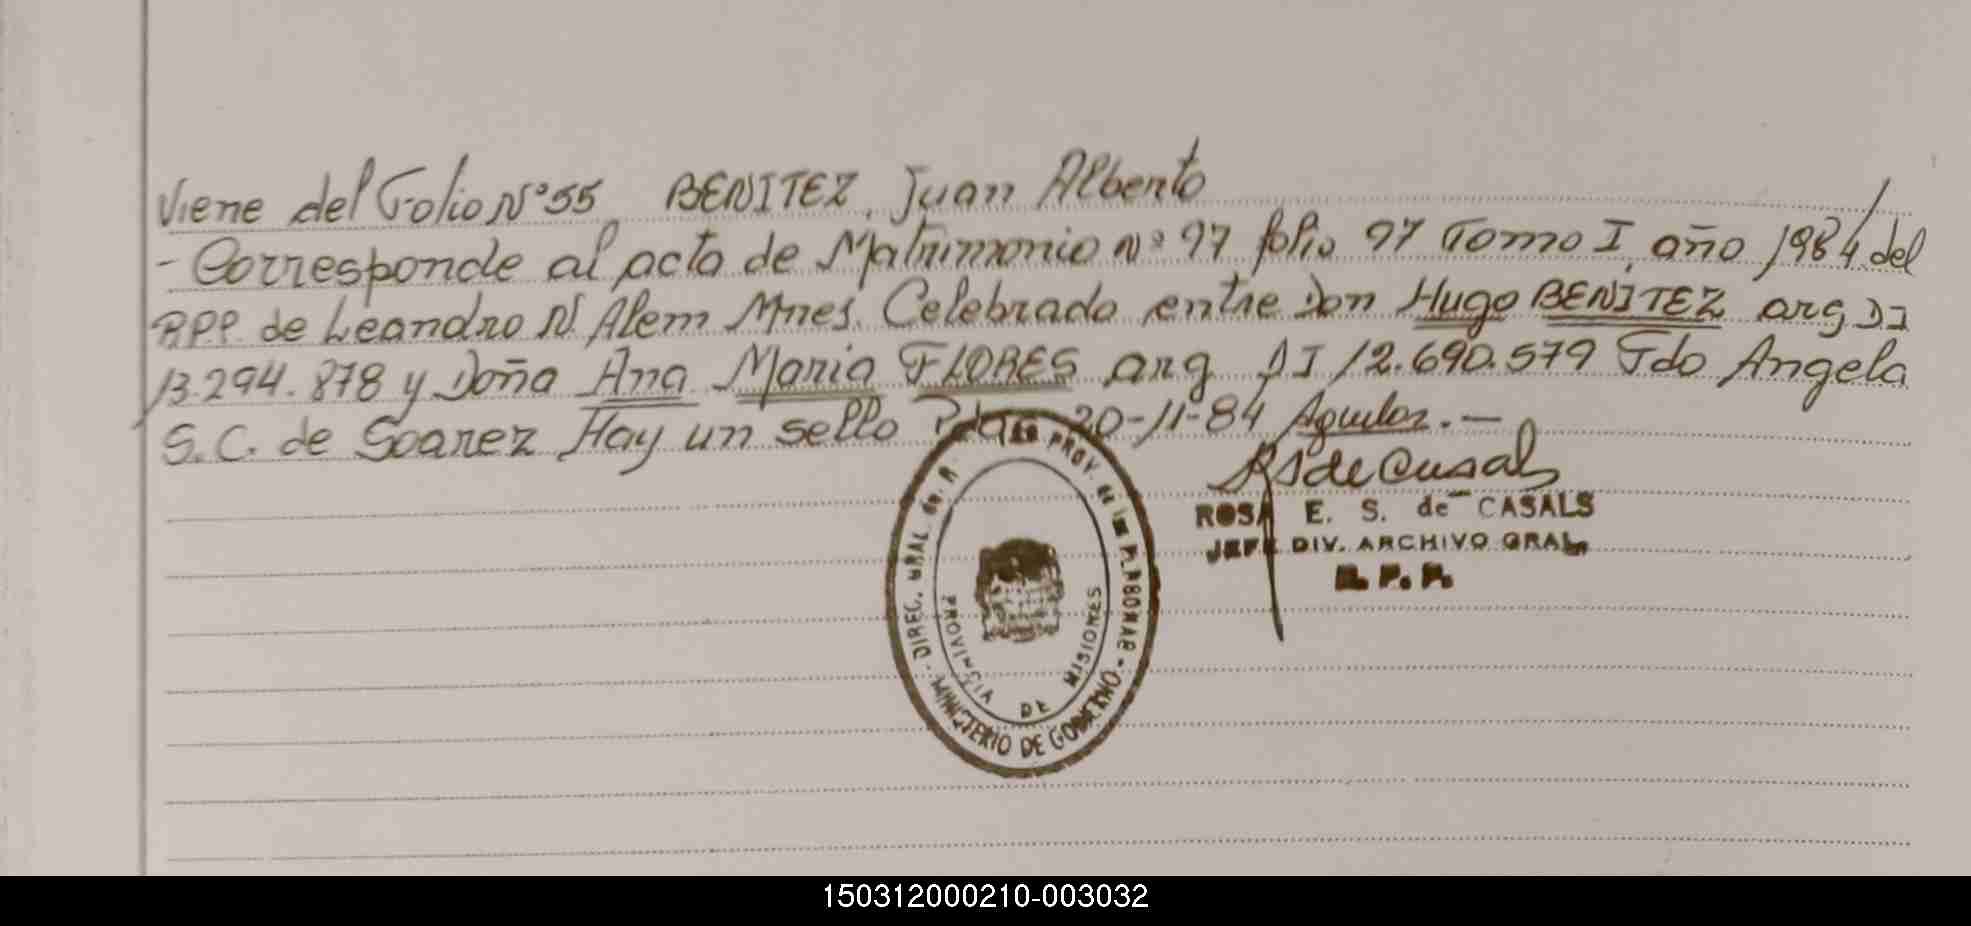 Viene del Folio Nº 55 BENITEZ, Juan Alberto
- Corresponde al acta de Matrimonio Nº 97 folio 97 Tomo I, año 1984 del
R.P.P. de Leandro N. Alem Mnes. Celebrado entre Don Hugo BENITEZ arg DI
13.294.878 y Doña Ana Maria FLORES arg DI 12.690.579 Fdo Angela
S. C. de Soarez Hay un sello Pdas 20-11-84 Aguilar.-
RSdeCasals
ROSA E. S. de CASALS
JEFE DIV. ARCHIVO GRAL.
R. P. P.
DIREC. GRAL. de PROV. de las PERSONAS - MINISTERIO DE GOBIERNO -
PROVINCIA DE MISIONES
150312000210-003032